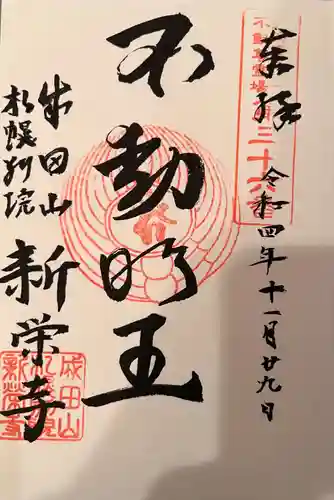 奉拝
令和四年十一月廿九日
第三十六番
不動明王
成田山
札幌別院
新栄寺
成田山
札幌別院
新栄寺